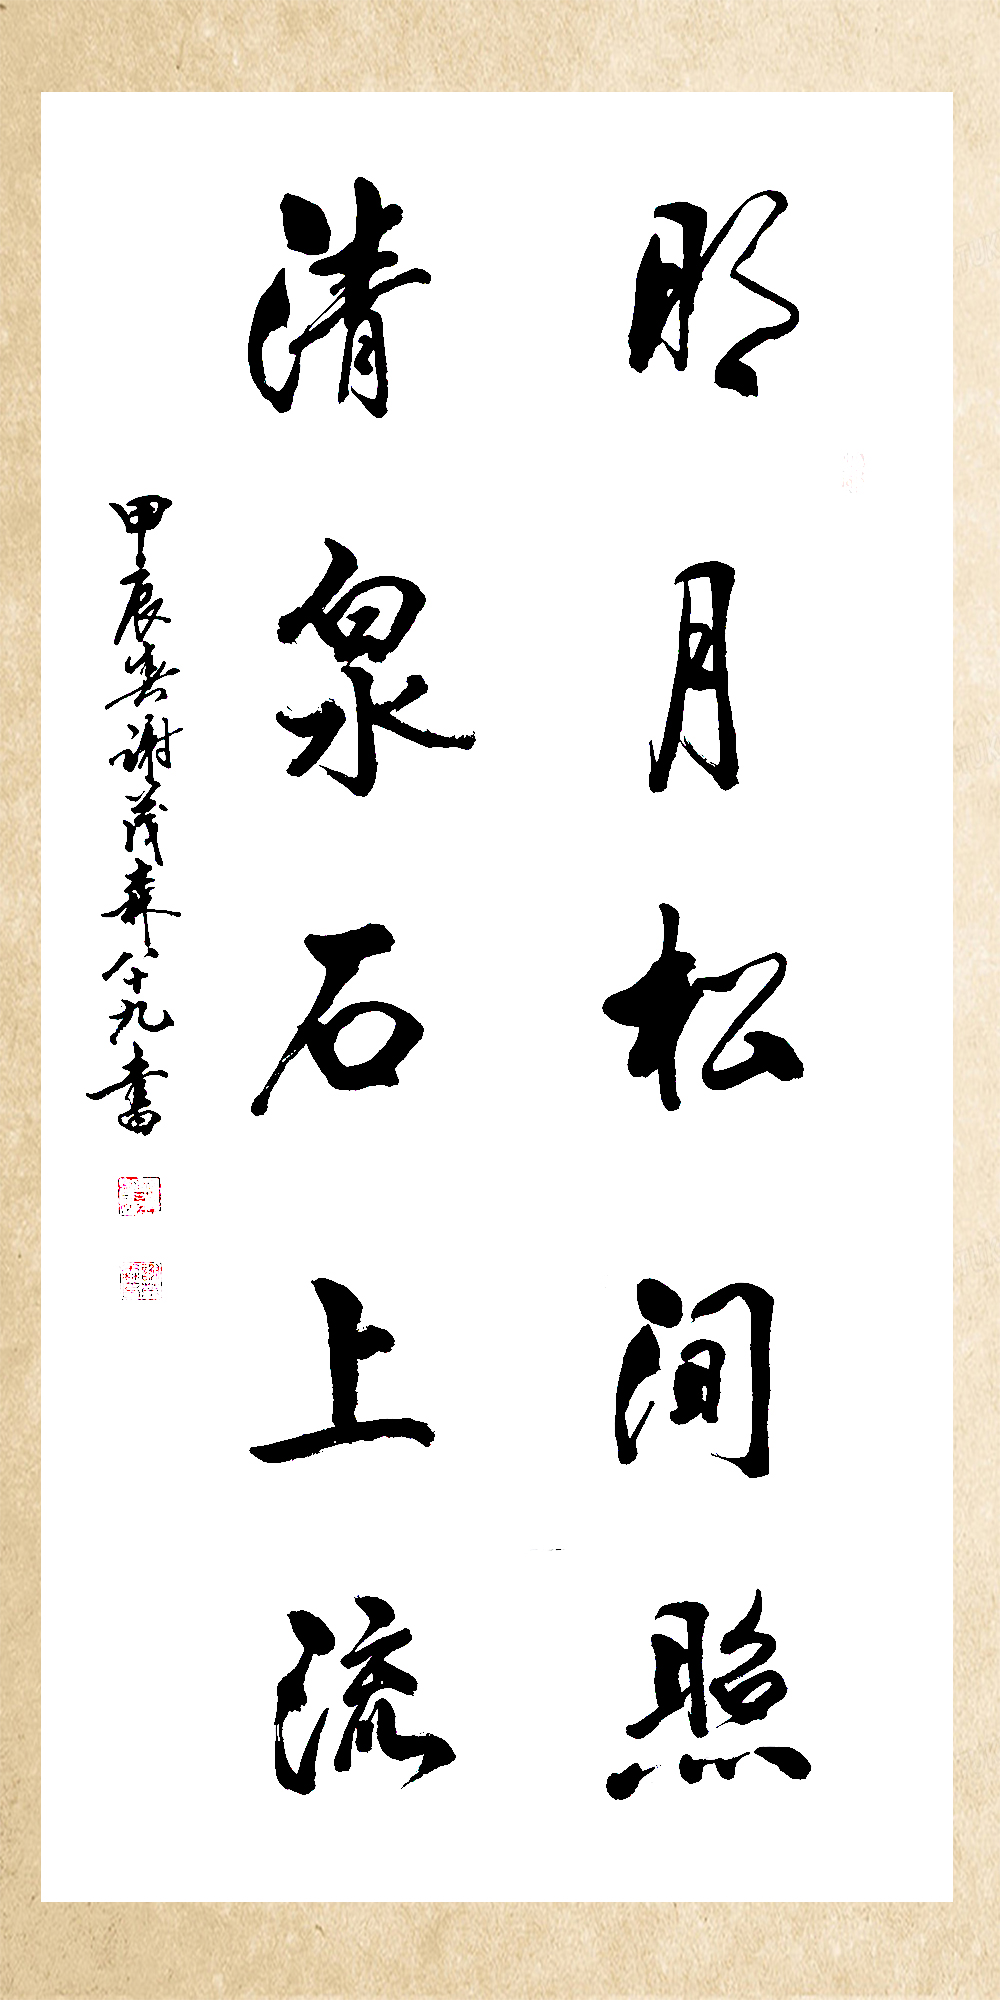 明月松涧照
清泉石上流
甲辰春谢茂森八十九书